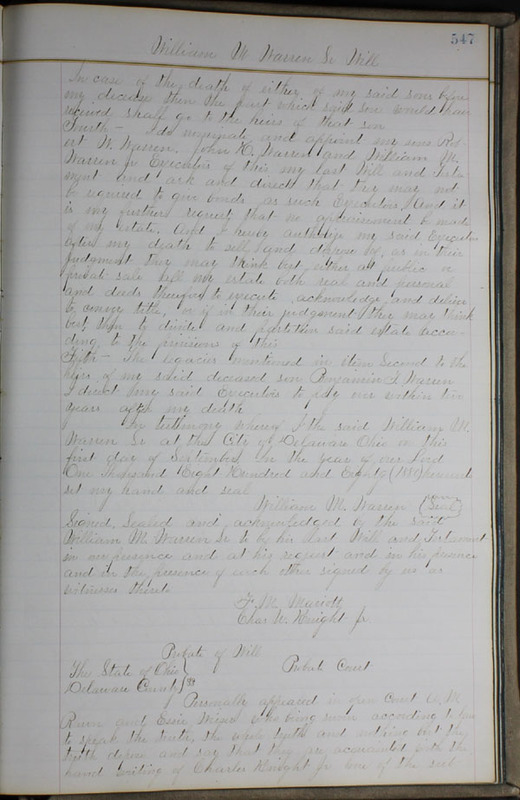 547
William M Warren Sr Will
In case of the death of either of my said sons before
my decease then the part which said son would have
received shall go to the heirs of that son
Fourth — I do nominate and appoint my sons Rob-
ert W. Warren. John H. Warren and William M.
Warren jr Executors of this my last Will and Testa
ment and ask and direct that they may not
be required to give bonds as such Executors, And it
is my further request that no appraisement be made
of my estate. And I hereby authorize my said Executors
after my death to sell and dispose of, as in their
judgment they may think best, either at public or
private sale all my estate both real and personal
and deeds therefor to execute, acknowledge and deliver
to convey title, or if in their judgment they may think
best then to divide and partition said estate accor-
ding to the provisions of this
Fifth — The legacies mentioned in item Second to the
heirs of my said deceased son Benjamin Warren
I direct my said Executors to pay over within two
years after my death
In testimony whereof I the said William M.
Warren Sr at the City of Delaware Ohio on this
first day of September in the year of our Lord
One Thousand Eight Hundred and Eighty (1880) hereunto
set my hand and seal
William M. Warren (Seal)
Signed, Sealed and acknowledged by the said
William M. Warren Sr. to be his last Will and Testament
in our presence and at his request and in his presence
and in the presence of each other signed by us as
witnesses thereto
F. M. Marriott
Chas W. Knight jr
Probate of Will
The State of Ohio Probate Court
Delaware County } ss
Personally appeared in open Court
and Essie who being sworn according to law
to speak the truth, the whole truth and nothing but the
truth depose and say that they are acquainted with the
hand writing of Charles Knight jr one of the